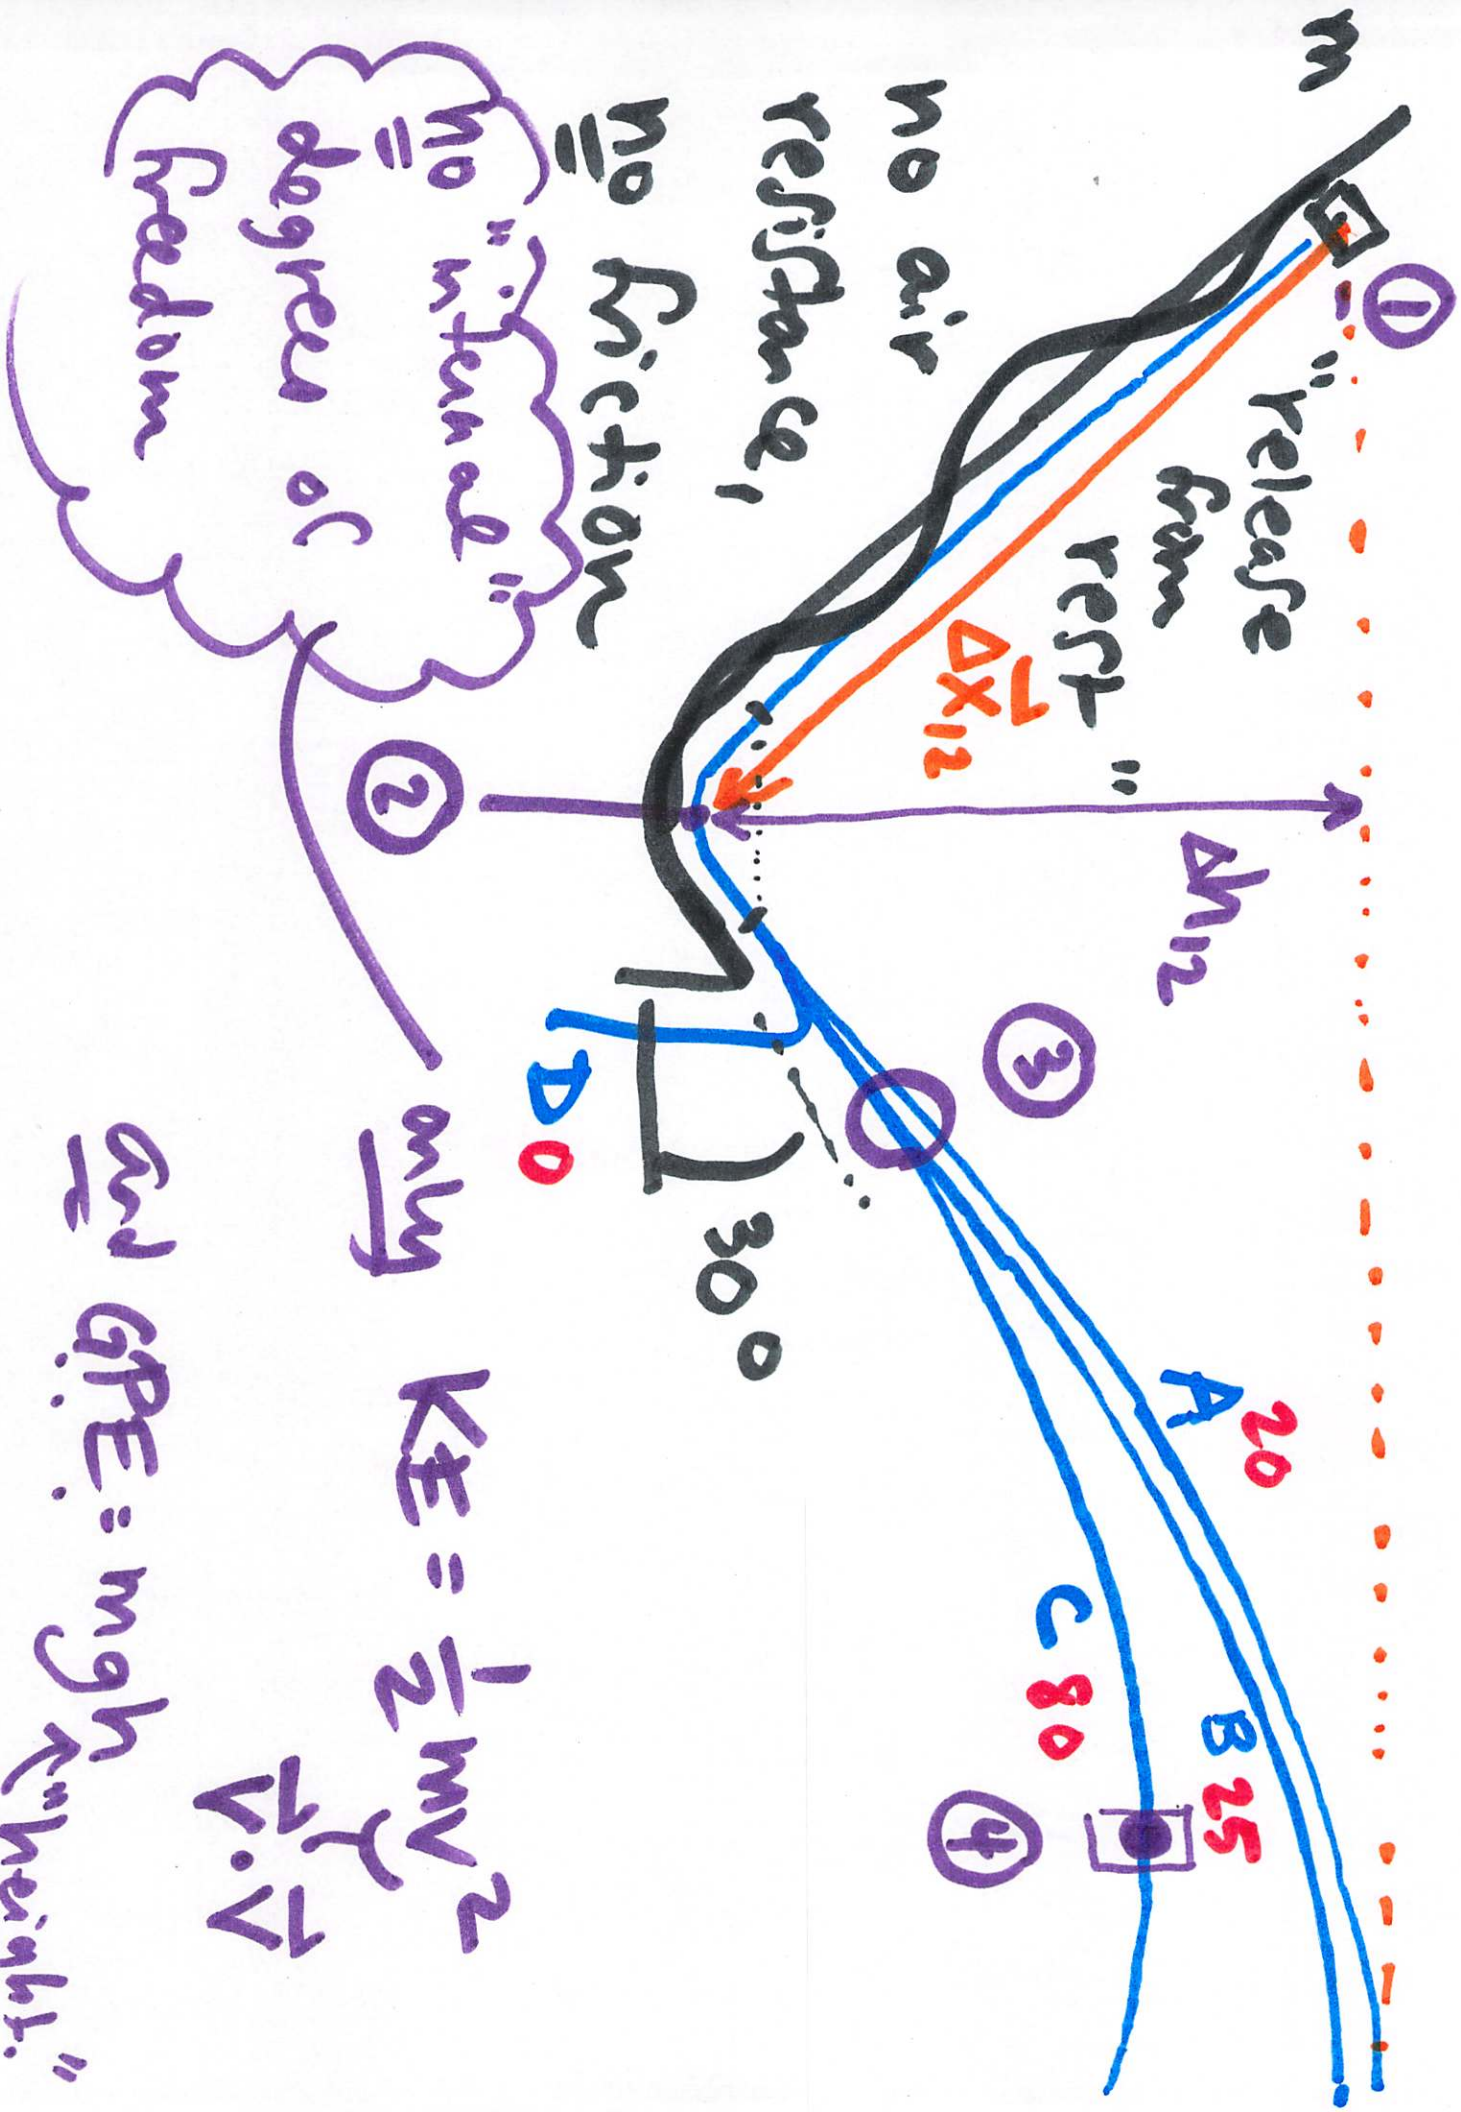 m
①
"release
from
rest"
Δh₁₂
Δx⃗₁₂
no air
resistance,
no friction
no "internal"
degrees of
freedom
②
③
④
30°
A 20
B 25
C 80
D 0
only KE = ½ mv²
v⃗·v⃗
and GPE = mgh
"height."